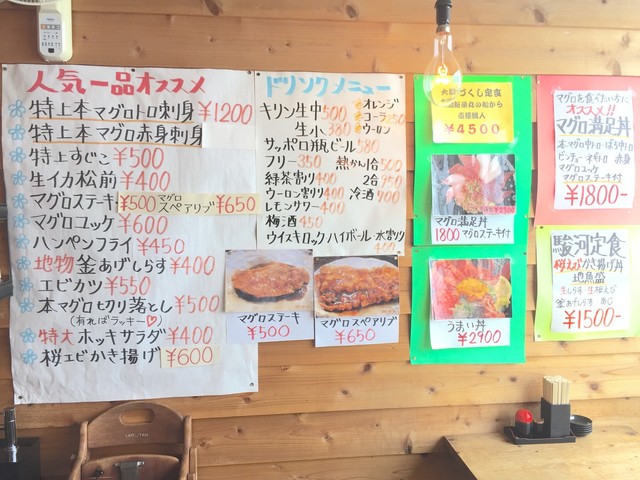 人気一品オススメ
特上本マグロトロ刺身 ¥1200
特上本マグロ赤身刺身
特上すじこ ¥500
生イカ松前 ¥400
マグロステーキ ¥500 マグロスペアリブ ¥650
マグロユッケ ¥600
ハンペンフライ ¥450
地物釜あげしらす ¥400
エビカツ ¥550
本マグロセクリ落とし ¥500
(有ればラッキー♡)
特大ホッキサラダ ¥400
桜エビかき揚げ ¥600
ドリンクメニュー
キリン生中500
生小380
オレンジ
コーラ
ウーロン
サッポロ瓶ビール580
フリー350 熱かん
緑茶割り400 2合
ウーロン割り400 冷酒
レモンサワー400
梅酒450
ウイスキロック ハイボール 水割り
マグロステーキ
¥500
マグロスペアリブ
¥650
づくし定食
¥4500
マグロ満足丼
1800 マグロステーキ付
うまい丼
¥2900
マグロを食べたい方に
オススメ!!
マグロ満足丼
赤身
マグロユッケ
マグロステーキ付
¥1800-
駿河定食
桜えびかき揚げ丼
地魚盛
生しらす 生桜えび
釜あげしらす
¥1500-